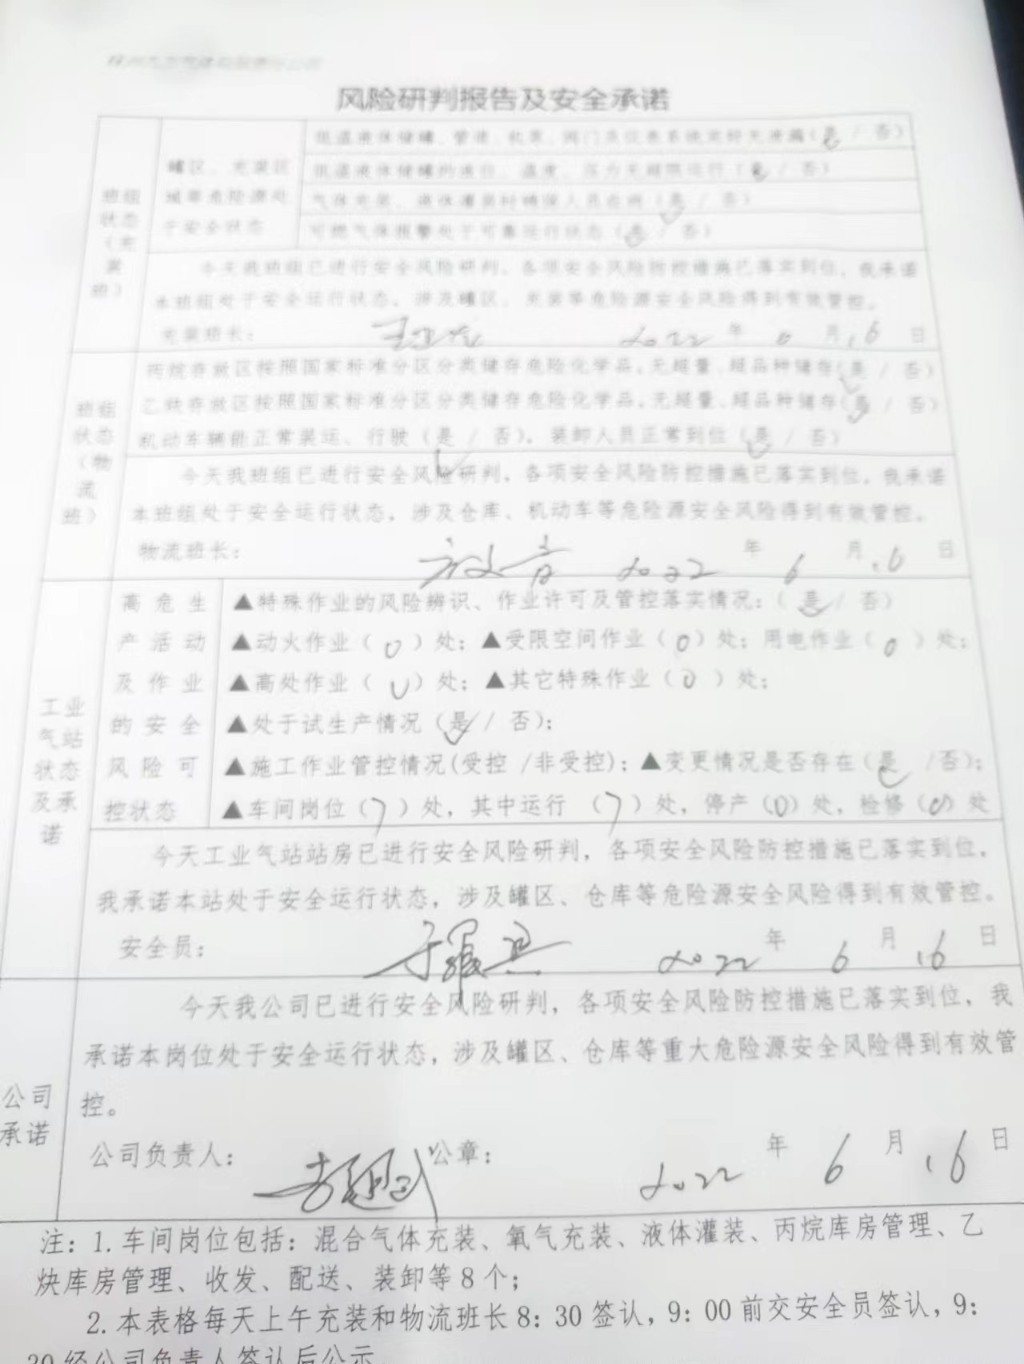 风险研判报告及安全承诺
班组状态（充装班）
罐区、充装区域等危险源处于安全状态
低温液体储罐、管道、机泵、阀门及仪表系统完好无泄漏（是 / 否）
低温液体储罐的液位、温度、压力无超限运行（是 / 否）
气体充装、液体灌装时确保人员在岗（是 / 否）
可燃气体报警处于可靠运行状态（是 / 否）
今天我班组已进行安全风险研判，各项安全风险防控措施已落实到位，我承诺
本班组处于安全运行状态，涉及罐区、充装等危险源安全风险得到有效管控。
充装班长： 2022 年 6 月 16 日
班组状态（物流班）
丙烷存放区按照国家标准分区分类储存危险化学品，无超量、超品种储存（是 / 否）
乙炔存放区按照国家标准分区分类储存危险化学品，无超量、超品种储存（是 / 否）
机动车辆能正常装运、行驶（是 / 否），装卸人员正常到位（是 / 否）
今天我班组已进行安全风险研判，各项安全风险防控措施已落实到位，我承诺
本班组处于安全运行状态，涉及仓库、机动车等危险源安全风险得到有效管控。
物流班长： 2022 年 6 月 16 日
工业气站状态及承诺
高危生产活动及作业的安全风险可控状态
▲特殊作业的风险辨识、作业许可及管控落实情况：（是 / 否）
▲动火作业（ 0 ）处；▲受限空间作业（0）处；用电作业（ 0 ）处；
▲高处作业（ 0 ）处；▲其它特殊作业（0 ）处；
▲处于试生产情况（是 / 否）；
▲施工作业管控情况(受控 /非受控)；▲变更情况是否存在（是 /否）；
▲车间岗位（7）处，其中运行 （7）处，停产（0）处，检修（0）处
今天工业气站站房已进行安全风险研判，各项安全风险防控措施已落实到位，
我承诺本站处于安全运行状态，涉及罐区、仓库等危险源安全风险得到有效管控。
安全员： 2022 年 6 月 16 日
公司承诺
今天我公司已进行安全风险研判，各项安全风险防控措施已落实到位，我
承诺本岗位处于安全运行状态，涉及罐区、仓库等重大危险源安全风险得到有效管
控。
公司负责人： 公章： 2022 年 6 月 16 日
注：1.车间岗位包括：混合气体充装、氧气充装、液体灌装、丙烷库房管理、乙
炔库房管理、收发、配送、装卸等8个；
2.本表格每天上午充装和物流班长8：30签认，9：00前交安全员签认，9：
30经公司负责人签认后公示